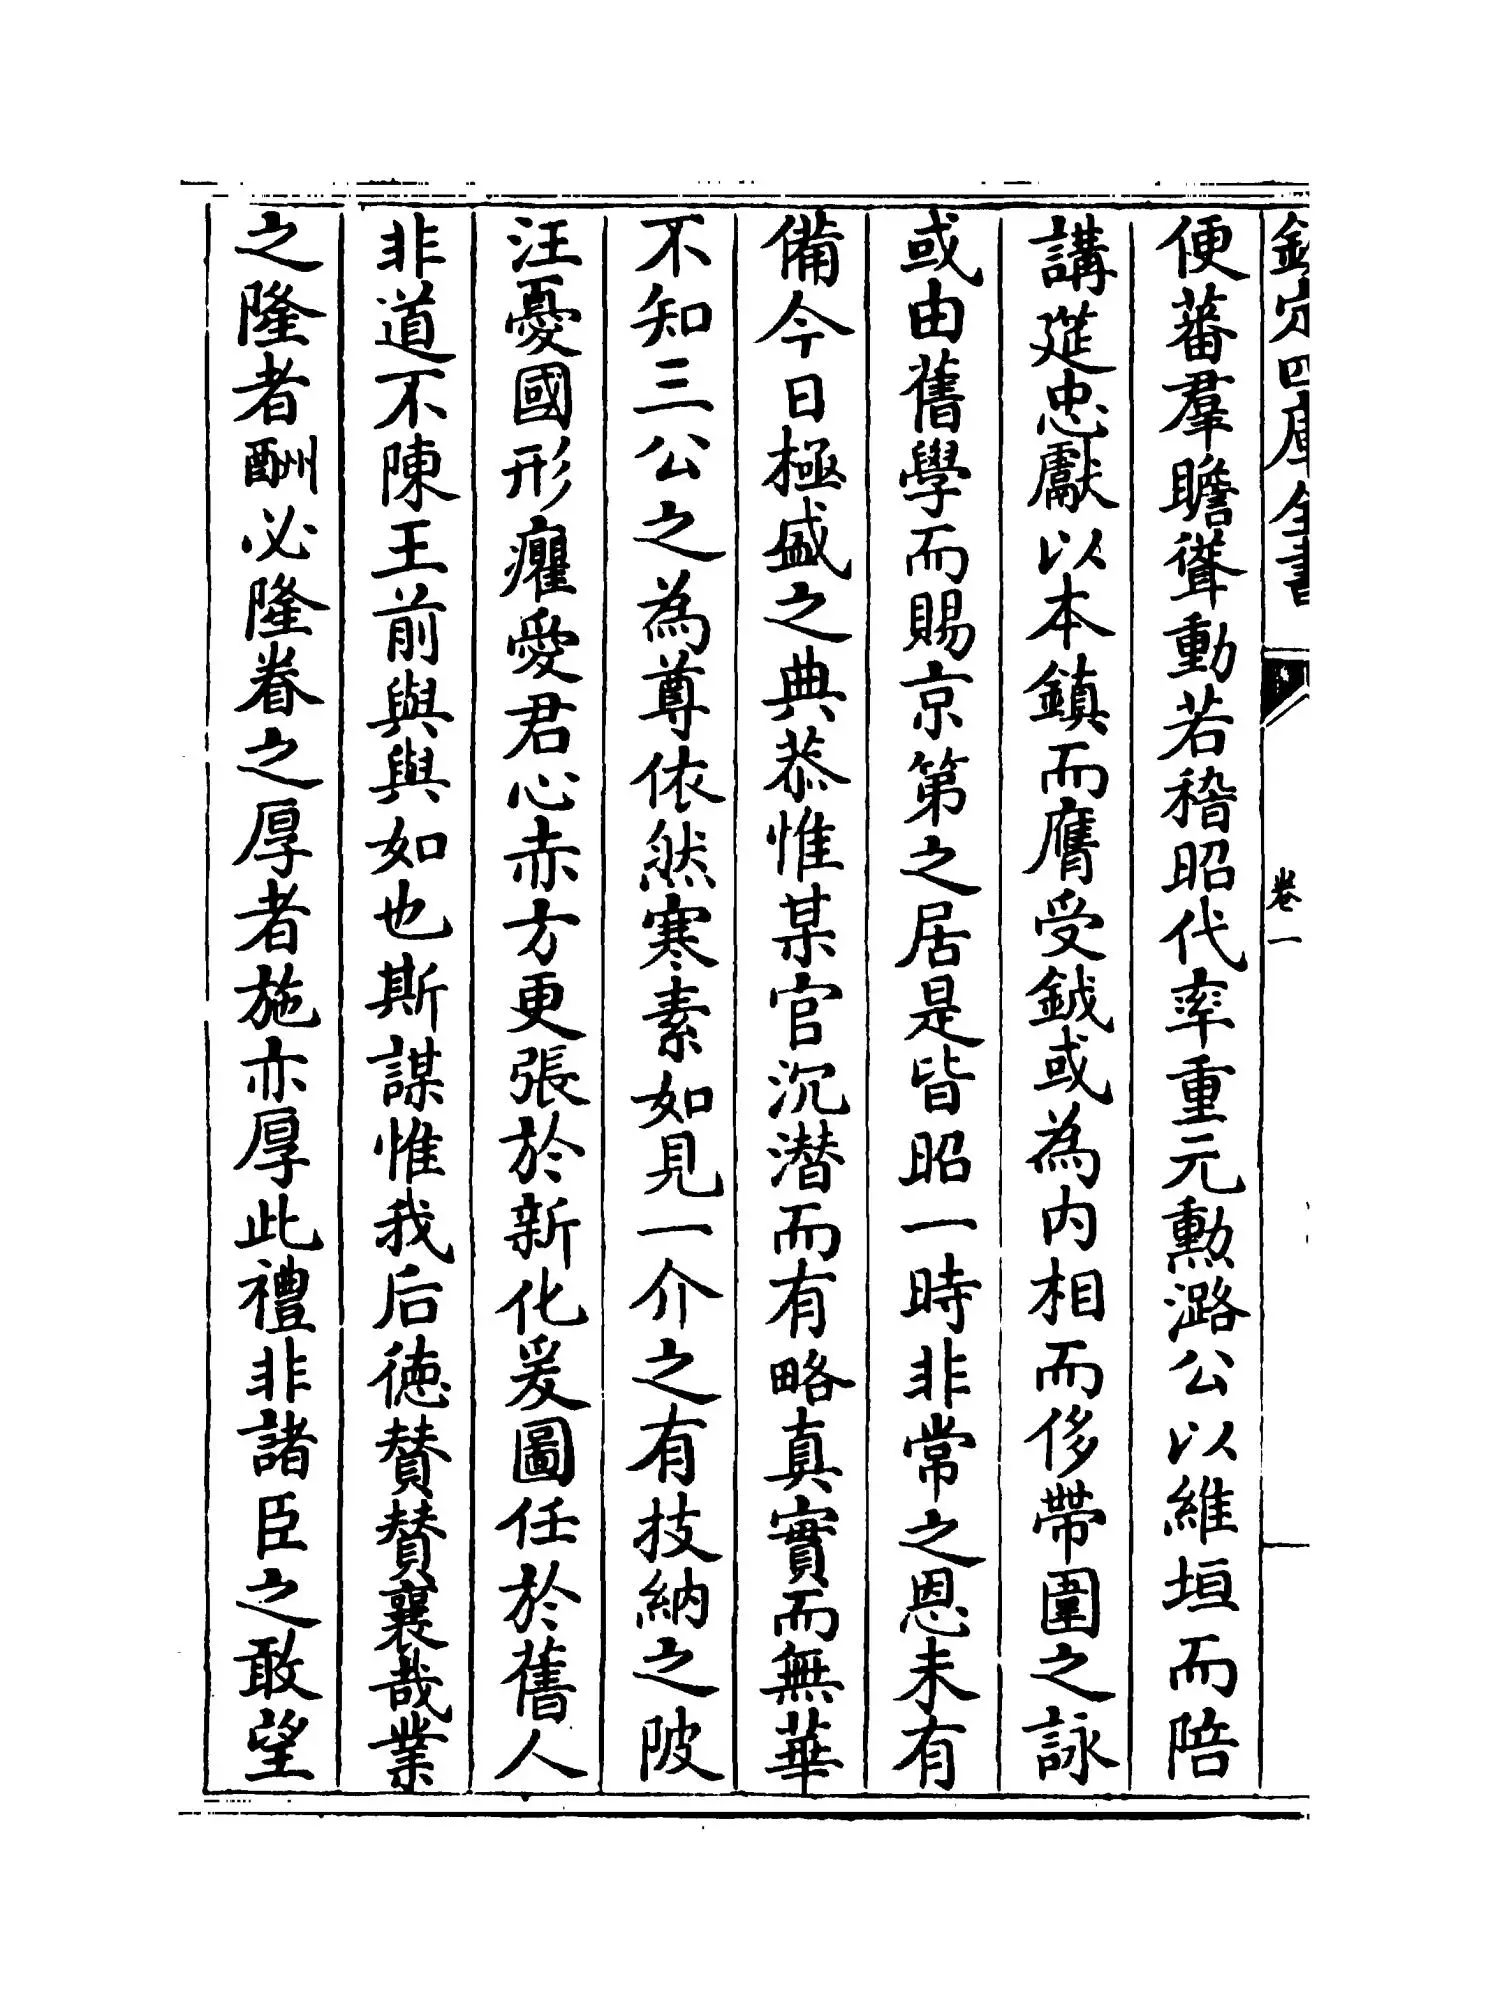 欽定四庫全書
卷一
便蕃羣瞻聳動若稽昭代率重元勲潞公以維垣而陪
講筵忠獻以本鎮而膺受鉞或為内相而侈帶圍之詠
或由舊學而賜京第之居是皆昭一時非常之恩未有
備今日極盛之典恭惟某官沉潜而有略真實而無華
不知三公之為尊依然寒素如見一介之有技納之陂
汪憂國形癯愛君心赤方更張於新化爰圖任於舊人
非道不陳王前與與如也斯謀惟我后徳賛賛襄哉業
之隆者酬必隆眷之厚者施亦厚此禮非諸臣之敢望